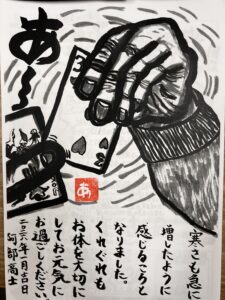 あ〜
3
あ
寒さも急に
増したように
感じるころと
なりました。
くれぐれも
お体を大切に
してお元気に
お過ごしください。
二〇二六年一月吉日
阿部高士